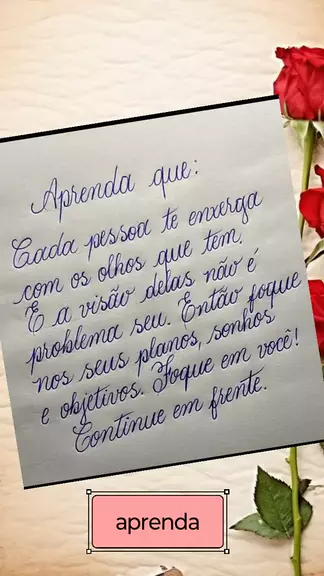 Aprenda que:
Cada pessoa te enxerga
com os olhos que tem.
E a visão delas não é
problema seu. Então foque
nos seus planos, sonhos
e objetivos. Foque em você!
Continue em frente.
aprenda